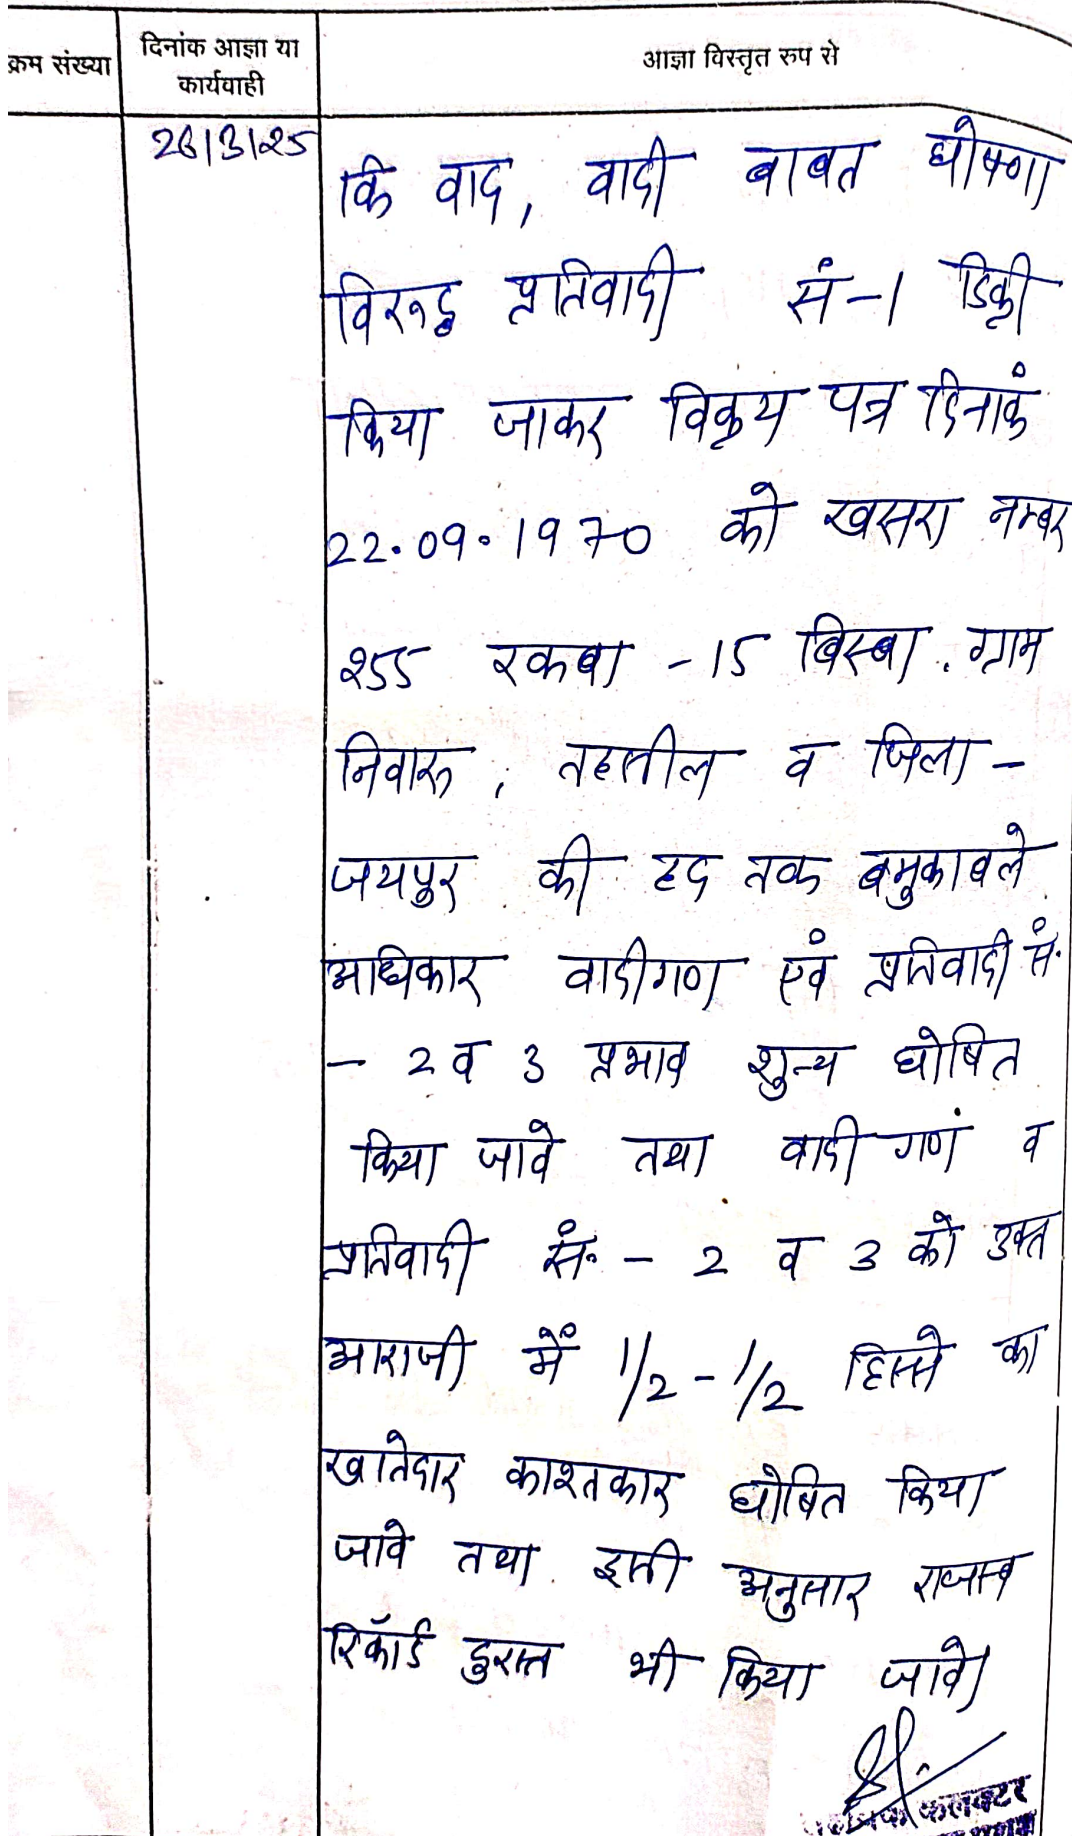 क्रम संख्या
दिनांक आज्ञा या
कार्यवाही
आज्ञा विस्तृत रुप से
26/3/25
कि वाद, वादी बाबत घोषणा
विरुद्ध प्रतिवादी सं-1 डिक्री
किया जाकर विक्रय पत्र दिनाकं
22.09.1970 को खसरा नम्बर
255 रकबा -15 बिस्बा, ग्राम
निवारू, तहसील व जिला -
जयपुर की हद तक बमुकाबले
अधिकार वादीगण एंव प्रतिवादी सं.
- 2 व 3 प्रभाव शुन्य घोषित
किया जावे तथा वादी गणं व
प्रतिवादी सं. - 2 व 3 को उक्त
आराजी में 1/2 - 1/2 हिस्से का
खातेदार काश्तकार घोषित किया
जावे तथा इसी अनुसार राजस्व
रिकॉर्ड दुरस्त भी किया जावे।
कलक्टर